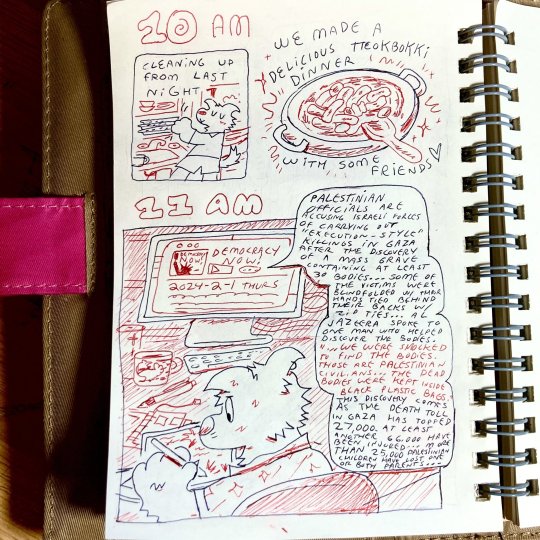 10 AM
CLEANING UP
FROM LAST
NIGHT
WE MADE A
DELICIOUS TTEOKBOKKI
DINNER
WITH SOME
FRIENDS
11 AM
DEMOCRACY
NOW!
DEMOCRACY
NOW!
2024-2-1 THURS
PALESTINIAN
OFFICIALS ARE
ACCUSING ISRAELI FORCES
OF CARRYING OUT
"EXECUTION-STYLE"
KILLINGS IN GAZA
AFTER THE DISCOVERY
OF A MASS GRAVE
CONTAINING AT LEAST
30 BODIES... SOME OF
THE VICTIMS WERE
BLINDFOLDED W/ THEIR
HANDS TIED BEHIND
THEIR BACKS W/
ZIP TIES... AL
JAZEERA SPOKE TO
ONE MAN WHO HELPED
DISCOVER THE BODIES.
"...WE WERE SHOCKED
TO FIND THE BODIES.
THOSE ARE PALESTINIAN
CIVILIANS... THE DEAD
BODIES WERE KEPT INSIDE
BLACK PLASTIC BAGS."
THIS DISCOVERY COMES
AS THE DEATH TOLL
IN GAZA HAS TOPPED
27,000. AT LEAST
ANOTHER 66,000 HAVE
BEEN INJURED... MORE
THAN 25,000 PALESTINIAN
CHILDREN HAVE LOST ONE
OR BOTH PARENTS...